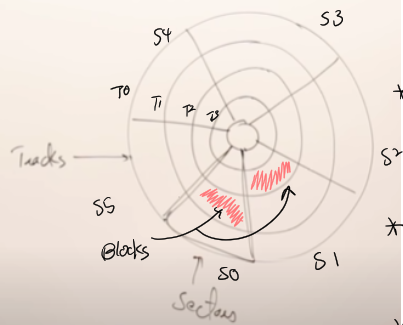 S3
S4
T0
T1
T2
T3
Tracks
S2
S5
Blocks
S0
S1
Sectors
*
*